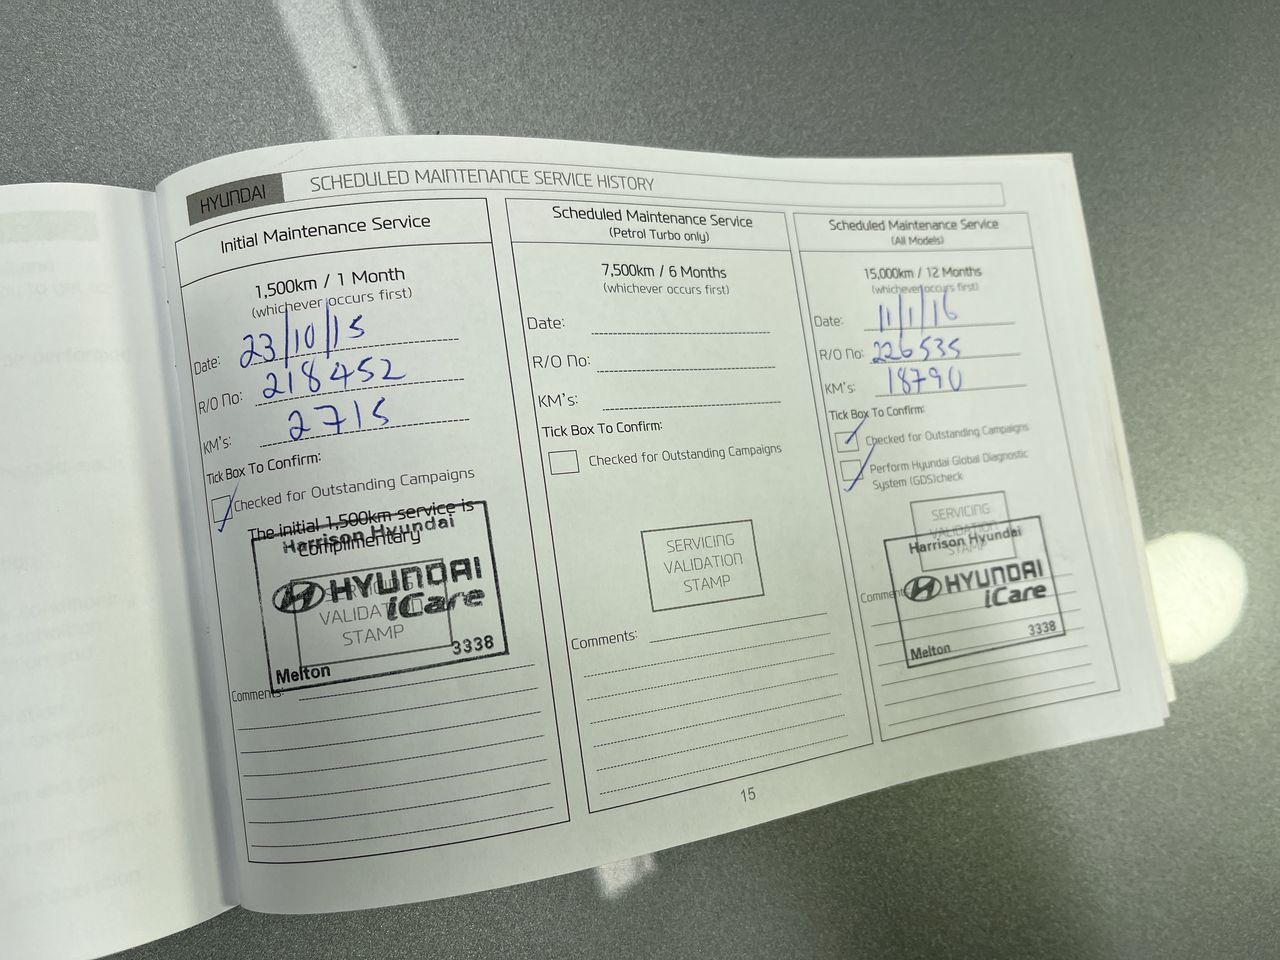 HYUNDAI SCHEDULED MAINTENANCE SERVICE HISTORY
Initial Maintenance Service
1,500km / 1 Month
(whichever occurs first)
Date: 23/10/15
R/O No: 218452
KM's: 2715
Tick Box To Confirm:
Checked for Outstanding Campaigns
The initial 1,500km service is
Complimentary
Harrison Hyundai
HYUNDAI
iCare
SERVICING
VALIDATION
STAMP
Melton 3338
Comments:
Scheduled Maintenance Service
(Petrol Turbo only)
7,500km / 6 Months
(whichever occurs first)
Date:
R/O No:
KM's:
Tick Box To Confirm:
Checked for Outstanding Campaigns
SERVICING
VALIDATION
STAMP
Comments:
Scheduled Maintenance Service
(All Models)
15,000km / 12 Months
(whichever occurs first)
Date: 11/1/16
R/O No: 226535
KM's: 18790
Tick Box To Confirm:
Checked for Outstanding Campaigns
Perform Hyundai Global Diagnostic
System (GDS)check
SERVICING
VALIDATION
STAMP
Harrison Hyundai
HYUNDAI
iCare
Melton 3338
Comments:
15